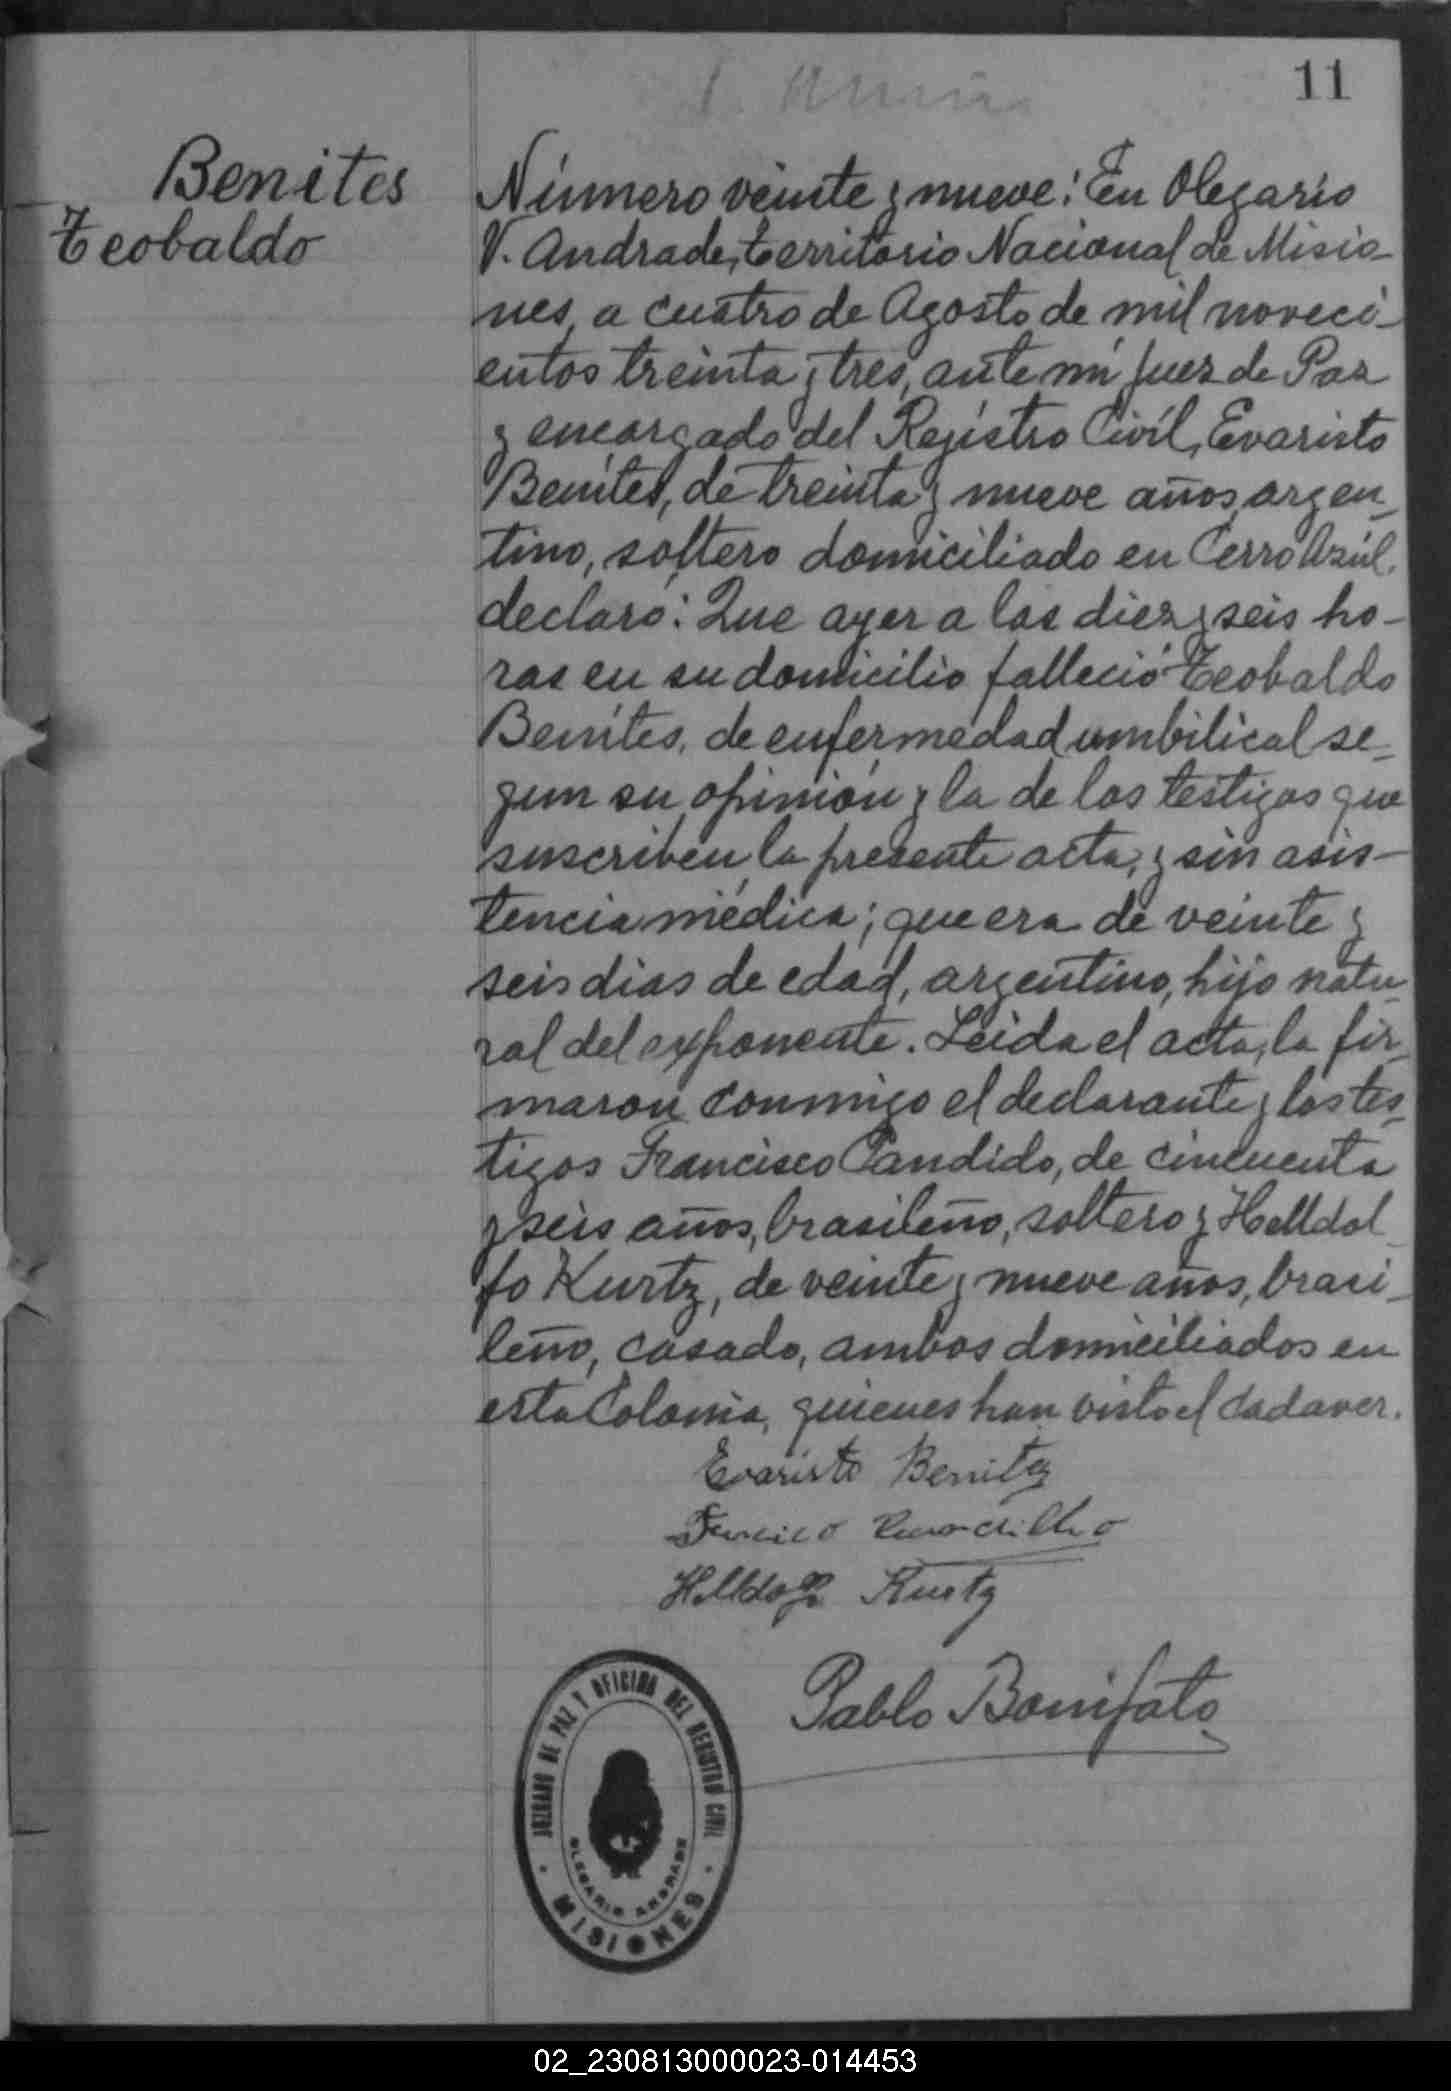 11
Benites
Teobaldo
Número veinte y nueve: En Olegario
V. Andrade, territorio Nacional de Misio-
nes, a cuatro de Agosto de mil noveci-
entos treinta y tres, ante mí Juez de Paz
y encargado del Registro Civíl, Evaristo
Benítes, de treinta y nueve años, argen-
tino, soltero domiciliado en Cerro Azúl.
declaró: Que ayer a las diez y seis ho-
ras en su domicilio falleció Teobaldo
Benítes, de enfermedad umbilical se-
gun su opinión y la de los testigos que
suscriben la presente acta, y sin asis-
tencia médica; que era de veinte y
seis dias de edad, argentino, hijo natu-
ral del exponente. Leida el acta, la fir-
maron conmigo el declarante y los tes-
tigos Francisco Candido, de cincuenta
y seis años, brasileño, soltero y Helldol-
fo Kurtz, de veinte y nueve años, brasi-
leño, casado, ambos domiciliados en
esta Colonia, quienes han visto el cadaver.
Evaristo Benitez
Kurtz
Pablo Bonifato
JUZGADO DE PAZ Y OFICINA DEL REGISTRO CIVIL
OLEGARIO ANDRADE
MISIONES
02_230813000023-014453